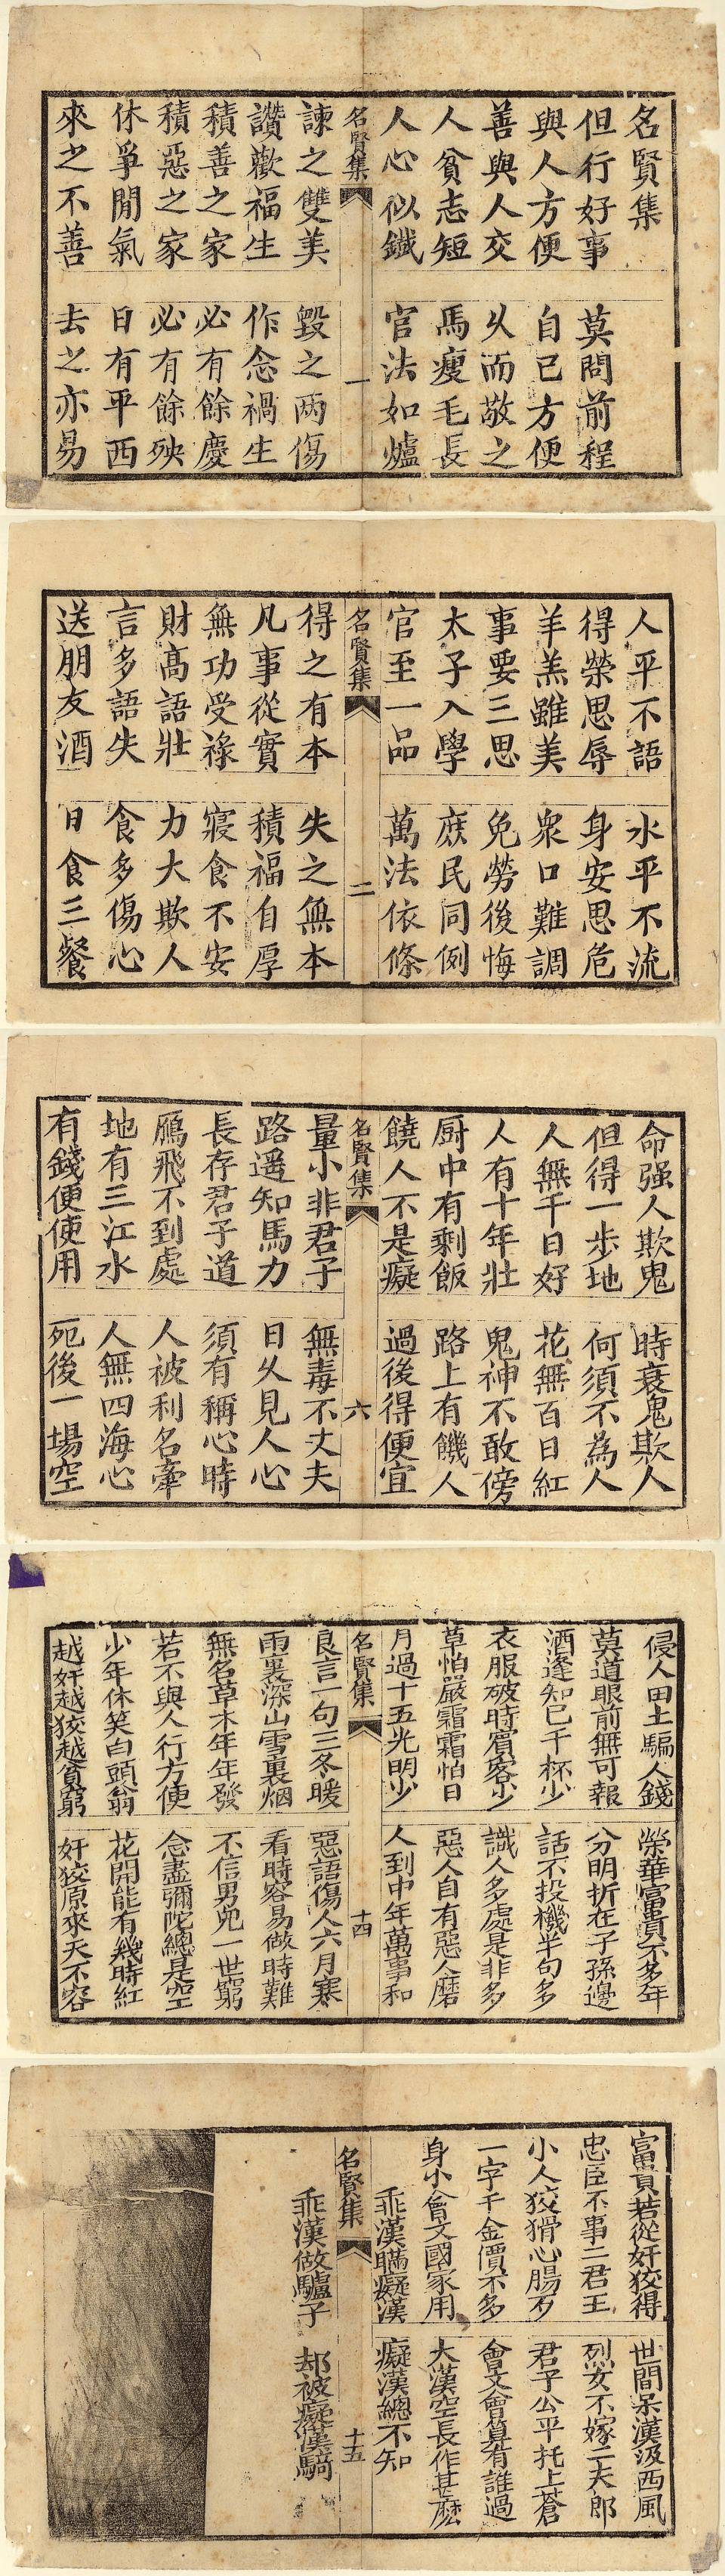 名賢集
但行好事 莫問前程
與人方便 自己方便
善與人交 久而敬之
人貧志短 馬瘦毛長
人心似鐵 官法如爐
名賢集 一
諫之雙美 毀之两傷
讚歎福生 作念禍生
積善之家 必有餘慶
積惡之家 必有餘殃
休爭閒氣 日有平西
來之不善 去之亦易
人平不語 水平不流
得榮思辱 身安思危
羊羔雖美 衆口難調
事要三思 免勞後悔
太子入學 庶民同例
官至一品 萬法依條
名賢集 二
得之有本 失之無本
凡事從實 積福自厚
無功受祿 寢食不安
財高語壯 力大欺人
言多語失 食多傷心
送朋友酒 日食三餐
命强人欺鬼 時衰鬼欺人
但得一步地 何須不為人
人無千日好 花無百日紅
人有十年壯 鬼神不敢傍
厨中有剩飯 路上有饑人
饒人不是癡 過後得便宜
名賢集 六
量小非君子 無毒不丈夫
路遥知馬力 日久見人心
長存君子道 須有稱心時
鴈飛不到處 人被利名牽
地有三江水 人無四海心
有錢便使用 死後一場空
侵人田土騙人錢 榮華富貴不多年
莫道眼前無可報 分明折在子孫邊
酒逢知己千杯少 話不投機半句多
衣服破時賓客少 識人多處是非多
草怕嚴霜霜怕日 惡人自有惡人磨
月過十五光明少 人到中年萬事和
名賢集 十四
良言一句三冬暖 惡語傷人六月寒
雨裏深山雪裏烟 看時容易做時難
無名草木年年發 不信男兒一世窮
若不與人行方便 念盡彌陀總是空
少年休笑白頭翁 花開能有幾時紅
越奸越狡越貧窮 奸狡原來天不容
富貴若從奸狡得 世間呆漢汲西風
忠臣不事二君王 烈女不嫁二夫郎
小人狡猾心腸歹 君子公平托上蒼
一字千金價不多 會文會算有誰過
身小會文國家用 大漢空長作甚麽
乖漢瞞癡漢 癡漢總不知
名賢集 十五
乖漢做驢子 却被癡漢騎